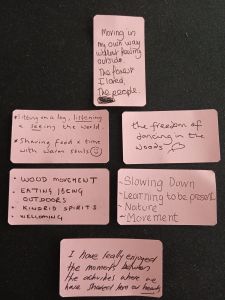 Moving in
my own way
without feeling
outside.
The forest
I loved.
The people.
* Sitting on a log, listening
& seeing the world.
* Sharing food & time
with warm souls ☺
the freedom of
dancing in the
woods ♡
- WOOD MOVEMENT
- EATING / BEING
OUTDOORS
- KINDRID SPIRITS
- WELCOMING
- Slowing Down
- Learning to be present
- Nature
- Movement
I have really enjoyed
the moments between
the activities where we
have shared